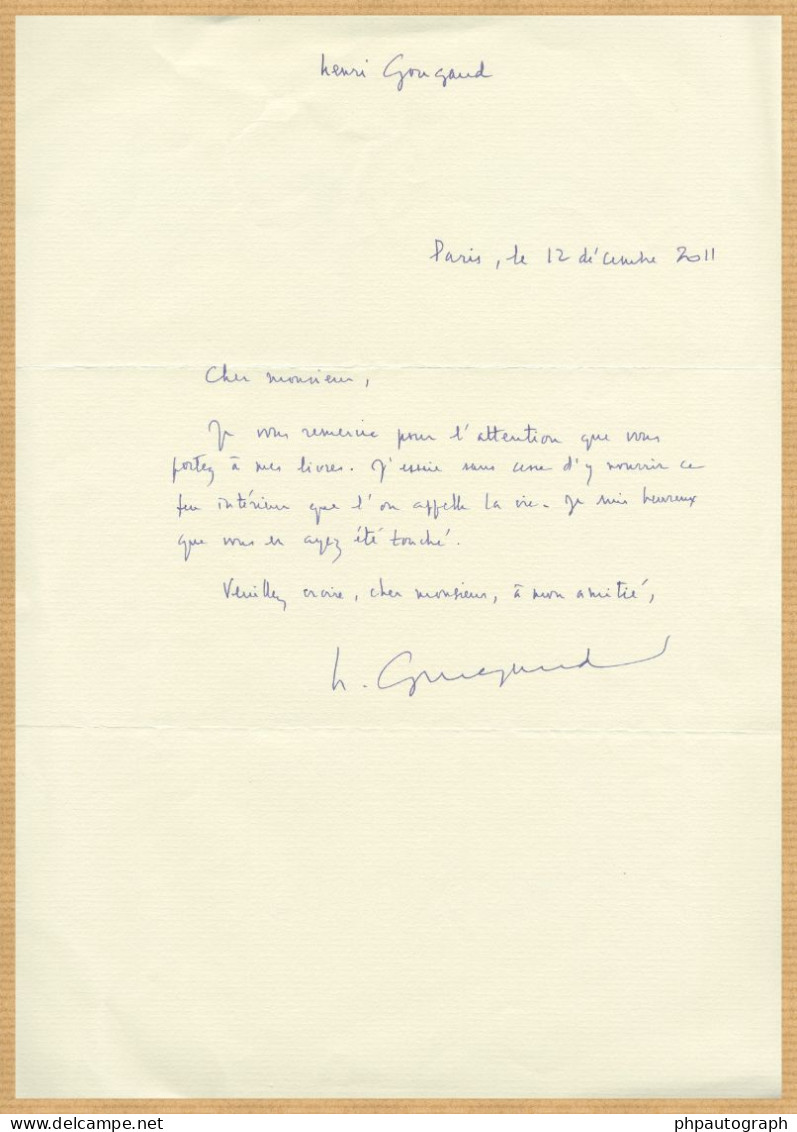 henri Gougaud
Paris, le 12 décembre 2011
Cher monsieur,
Je vous remercie pour l'attention que vous
portez à mes livres. J'essaie sans cesse d'y nourrir ce
feu intérieur que l'on appelle la vie. Je suis heureux
que vous en ayez été touché.
Veuillez croire, cher monsieur, à mon amitié,
h. Gougaud
delcampe.net
phpautograph